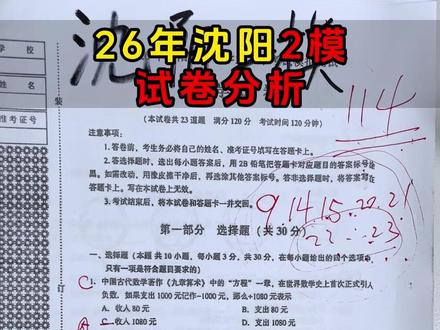 26年沈阳2模
试卷分析
学 校
姓 名
准考证号
装
订
(本试卷共23道题 满分120分 考试时间120分钟)
114
注意事项:
1. 答卷前,考生务必将自己的姓名、准考证号填写在答题卡上。
2. 答选择题时,选出每小题答案后,用2B铅笔把答题卡对应题目的答案标号涂
黑。如需改动,用橡皮擦干净后,再选涂其他答案标号。答非选择题时,将答案写在
答题卡上。写在本试卷上无效。
3. 考试结束后,将本试卷和答题卡一并交回。
9.14.15.20.21
22 23
第一部分 选择题(共30分)
一、选择题(本题共10小题,每小题3分,共30分。在每小题给出的四个选项中
只有一项是符合题目要求的)
C
1. 中国古代数学著作《九章算术》中的“方程”一章,在世界数学史上首次正式引入
负数。如果支出1000元记作-1000元,那么+1080元表示
A. 收入80元
B. 支出80元
C. 收入1080元
D. 支出1080元